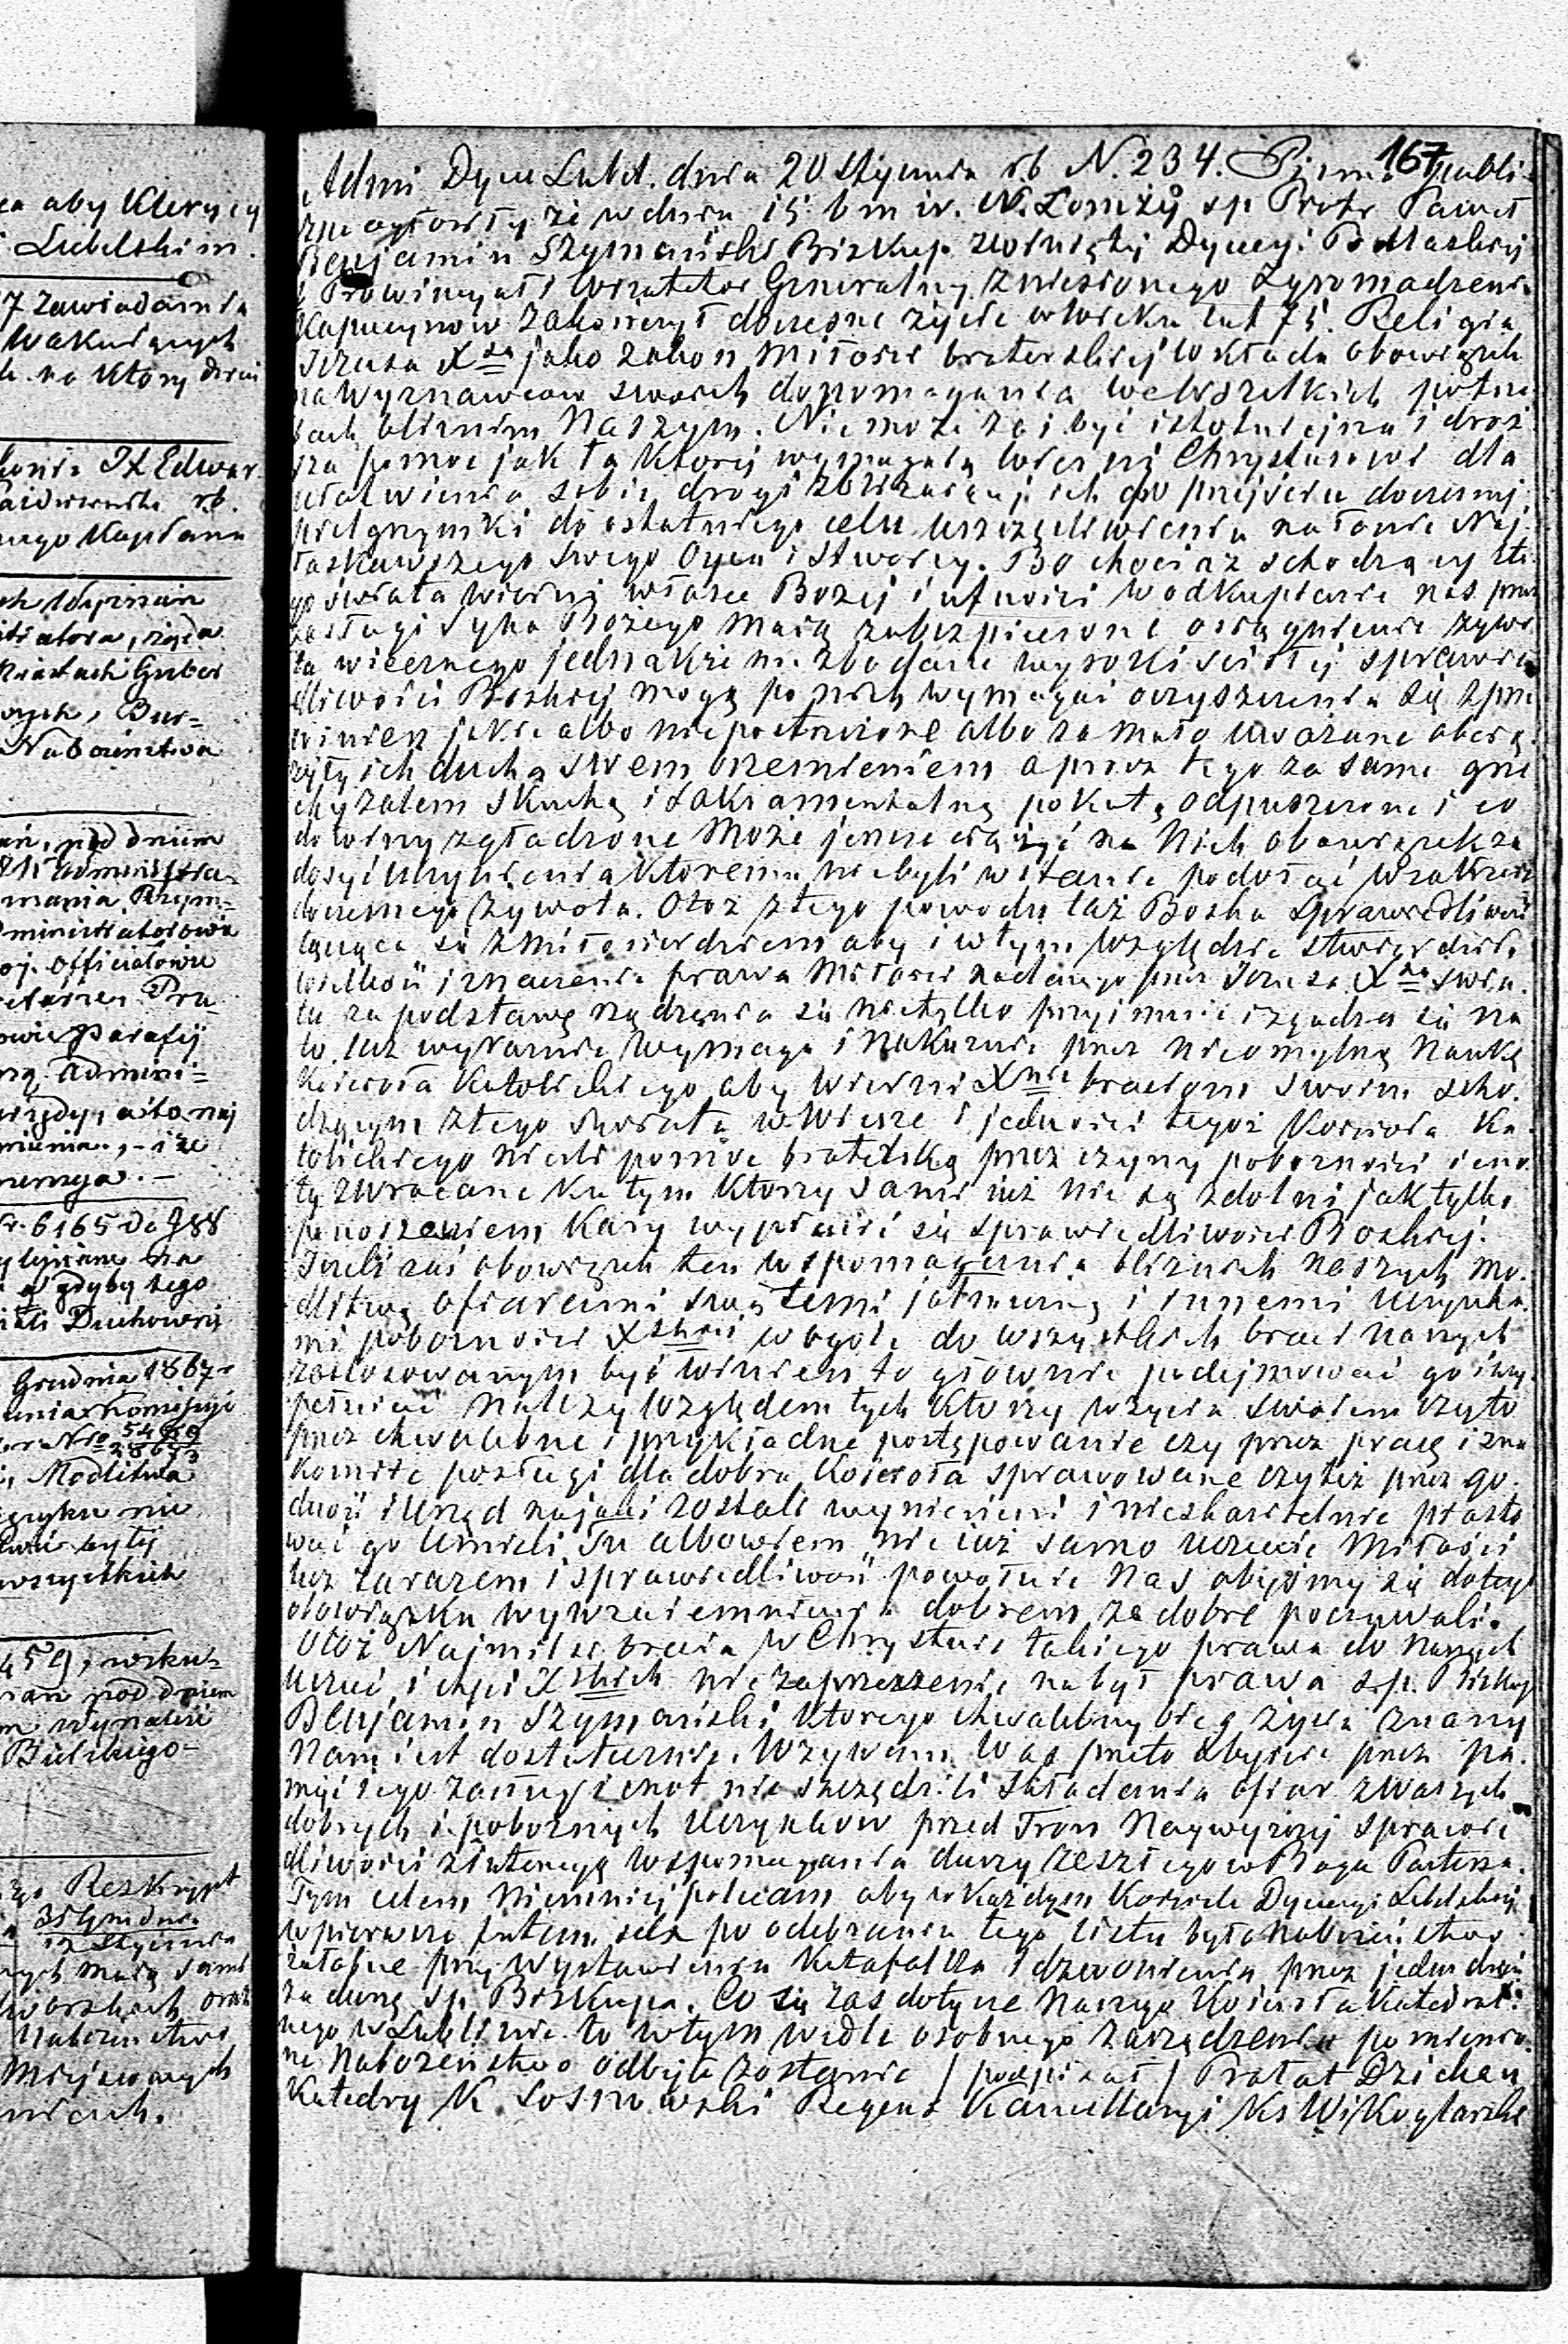 ca aby Klerycy
Lubelskim.
7 zawiadamia
Wakujących
na który dwie
X Edwar
Października r.b.
nego Kapłana
Administratora, rządca
Miastach Guber
Bur=
Nabożeństwa
pod dniem
administra=
Rzym=
dministratorowie
Officiałowie
Pra=
owie Parafij
admini=
Nr. 6165 do 988
na
gdyby tego
Duchowny
Grudnia 1867 r
Modlitwa
języku nie
wszystkich
459,
pod dniem
wynaleść
Bielskiego=
Reskrypt
31 Grudnia
12 Stycznia
mają sami
oraz
Nabożeństwo
Miejscowych
167
Admi Dyec Lubel. dnia 20 Stycznia r.b N. 234. Pisma publi-
czne ogłosiły że w dniu 15 b m i r. w Łomży sp Piotr Paweł
Benjamin Szymański Biskup zwiniętej Dyecezyi Podlaskiej
i Prowincyał i Wizytator Generalny zniesionego Zgromadzenia
Kapucynów zakończył doczesne życie w wieku lat 75. Religia
Jezusa Xsa jako zakon miłości braterskiej wkłada obowiązek
na wyznawców swoich dopomagania we wszelkich potrze
bach bliźnim Naszym. Nie może zaś być istotniejsza i droż
sza pomoc jak ta której wymagają wierni Chrystusowi dla
ułatwienia sobie drogi zbliżającej ich po przejściu doczesnej
pielgrzymki do ostatniego celu uszczęśliwienia na łonie Naj
łaskawszego swego Oyca i Stwórcy. Bo chociaż schodzący z te
go świata wierni w łasce Bożej i ufności w odkupienie nas przez
zasługi Syna Bożego mają zabezpieczone osiągnienie żywo
ta wiecznego jednakże niezbadane wyroki ścisłej sprawie
dliwości Boskiej mogą po nich wymagać oczyszczenia się z prze
winień jakie albo niepostrzeżone albo za mało uważane obcią
żyły ich ducha swem brzemieniem a przez tego za same grze
chy żalem skruchą i Sakramentalną pokutą odpuszczone i co
do winy zgładzone może jeszcze ciążyć na Nich obowiązek za
dosyć uczynienia któremu nie byli w stanie podołać w zakresie
doczesnego żywota. Otoż z tego powodu taż Boska Sprawiedliwość
łącząca się z miłosierdziem aby i w tym względzie stwierdzić
wielkość i znaczenie prawa miłości nadanego przez Jezusa Xsa świa
tu za podstawę rządzenia się nietylko przyjmuje i zgadza się na
to lecz wyraźnie wymaga i nakazuje przez nieomylną Naukę
Kościoła Katolickiego aby wierni Xni braciom swoim scho
dzącym z tego świata w wierze i jedności tegoż Kościoła Ka
tolickiego nieśli pomoc braterską przez czyny pobożności i cno
ty zwracane ku tym którzy sami już nie są zdolni jak tylko
ponoszeniem Kary wypłacić się sprawiedliwości Boskiej.
Jeżeli zaś obowiązek ten wspomagania bliźnich naszych mo
dlitwą ofiarami świętemi jałmużną i innemi uczynka
mi pobożności Xskiej w ogóle do wszystkich braci naszych
zastosowanym być winien to głównie podejmować go i wy
pełniać należy względem tych którzy w życiu swoiem czyto
przez chwalebne i przykładne postępowanie czy przez pracę i zna
komite posługi dla dobra Kościoła sprawowane czyteż przez go
dność i urząd na jaki zostali wyniesieni i nieskazitelnie piasto
wać go umieli. Tu albowiem nie już samo uczucie Miłości
lecz zarazem i sprawiedliwość powołuje Nas abyśmy się do tego
obowiązku wywzajemnienia dobrem za dobre poczuwali.
Otoż Najmilsi bracia w Chrystusie takiego prawa do naszych
uczuć i chęci Xskich niezaprzeczenie nabył prawa s.p. Biskup
Benjamin Szymański którego chwalebny bieg życia znany
Nam jest dostatecznie. Wzywam Was przeto abyście przez pa
mięć jego zasług i cnot nie szczędzili składania ofiar z waszych
dobrych i pobożnych uczynków przed Tron Naywyższej sprawie
dliwości skutecznego wspomagania duszy zeszłego w Bogu Pasterza.
Tym celem Niemniej polecam aby w każdym Kościele Dyecezyi Lubelskiej
w pierwsze zaraz po odebraniu tego listu było nabożeństwo
żałobne przy wystawieniu Katafalka i dzwonieniu przez jeden dzień
za duszę sp. Biskupa. Co się zaś dotycze naszego Kościoła Katedral
nego w Lublinie to w tym wedle osobnego zarządzenia pomienio
ne Nabożeństwo odbyte zostanie / podpisał / Prałat Dziekan
Katedry K. Sosnowski Regens Kancellaryi Ks W. Koglarski